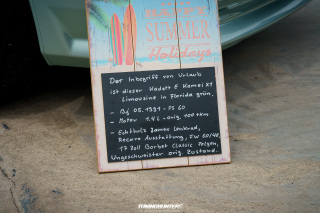 SUMMER
Holidays
Der Inbegriff von Urlaub
ist dieser Kadett E Kamei X1
Limousine in Florida grün.
- Bj 05.1991 - PS 60
- Motor 1.4 L - orig. 100 tkm
- Echtholz James Lenkrad,
Recaro Ausstattung, FW 60/40,
17 Zoll Borbet Classic Felgen,
Ungeschweisster orig. Zustand.
TUNINGHUNTERS